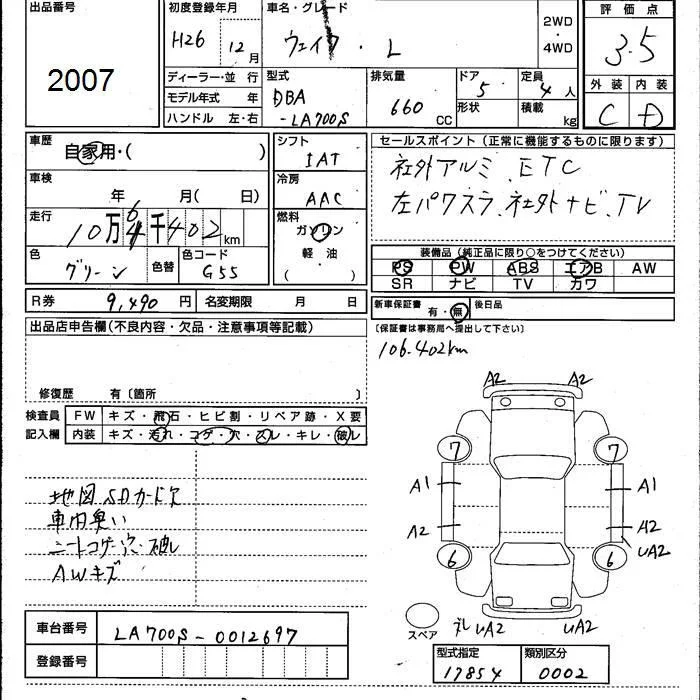 出品番号
2007
初度登録年月
H26 12月
車名・グレード
ウェイク・L
2WD
・
4WD
評価点
3.5
外装 内装
C D
ディーラー・並 行
モデル年式 年
ハンドル 左・右
型式
DBA
-LA700S
排気量
660 cc
ドア 5
形状
定員 4人
積載 kg
車歴
自家用・( )
車検
年 月( 日)
走行
10万6千402km
色
グリーン
色替
色コード
G55
シフト
IAT
冷房
AAC
燃料
ガソリン
軽 油
( )
セールスポイント(正常に機能するものに限ります)
社外アルミ、ETC
左パワスラ、社外ナビ、TV
装備品(純正品に限り○をつけてください)
PS PW ABS エアB AW
SR ナビ TV カワ
R券 9,490円 名変期限 月 日
新車保証書 有・無 後日品
(保証書は事務局へ提出して下さい)
出品店申告欄(不良内容・欠品・注意事項等記載)
106.402km
修復歴 有〔箇所 〕
検査員
記入欄
FW キズ・飛石・ヒビ割・リペア跡・X要
内装 キズ・汚れ・コゲ・穴・スレ・キレ・破レ
地図SDカード欠
車内臭い
シートコゲ穴・破レ
AWキズ
A2 A2
7 7
A1 A1
A2 A2
UA2
6 6
スペア
UA2 UA2
車台番号 LA700S-0012697
登録番号
型式指定 類別区分
17854 0002